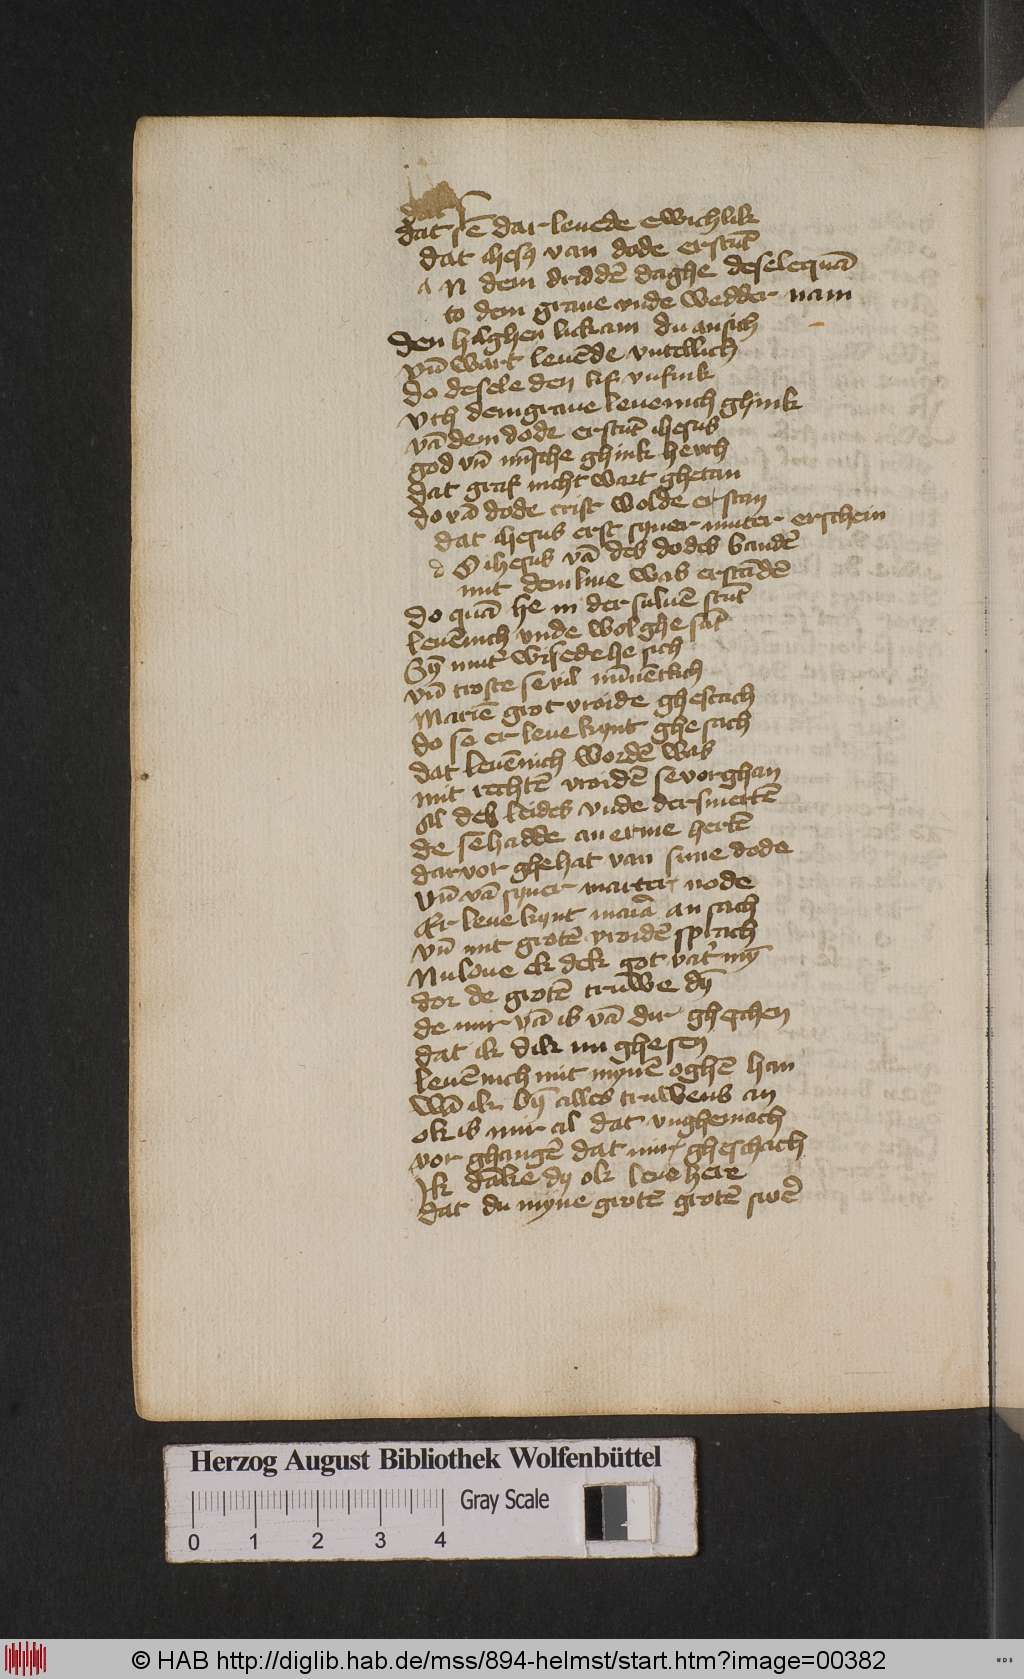 dat
dat sē dar leuede ewichlik
dat ihesꝰ van dode erstūt
a N dem driddē daghe de sele quā
to dem graue vnde wedder nam
den hilghen lickam du an sich
vn̄ wart leuēde vntetlich
do de sele den lif vnfink
vth dem graue leuenich ghink
vā dem dode erstūt ihesus
god vn̄ mīsche ghink herch
dat graf nicht wart ghetan
do vā dode crist wolde erstan
dat ihesus erst syner muter erschein
d O ihesus vā des dodes bandē
mit dem liue was erstādē
do quā he in der suluē stūt
leuēnich vnde wol ghe sūt
Sȳ mut' wisede he sich
vn̄ troste se vil mīnētlich
Mariē grot vroide gheschach
do se er leue kynt ghe sach
dat leuēnich wordē was
mit rechtē vroidē se vorghan
Al des leides vnde der smertē
de se hadde an erme hertē
dar vor ghehat van sime dode
Vn̄ vā syner marter node
Er leue kynt mariā an sach
vn̄ mit grotē vroidē sprach
Nu loue ek dek got vat' mȳ
dor de grotē truwe dȳ
de mir vā is vā dir gheschen
dat ik dik nu ghe sen
leuēnich mit mynē oghē han
Wā ik bȳ alles truwens an
ok is mir al dat vnghemach
vor ghangē dat mir gheschach
Jk dāke dy ok leue here
dat du myne grotē grotē swē
Herzog August Bibliothek Wolfenbüttel
Gray Scale
0 1 2 3 4
© HAB http://diglib.hab.de/mss/894-helmst/start.htm?image=00382